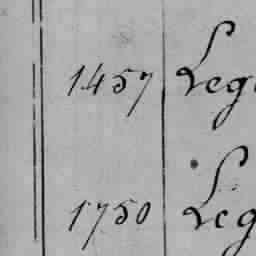 1457 Lege
1750 Leg